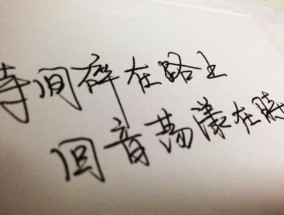 时间碎在路上
回音荡漾在时